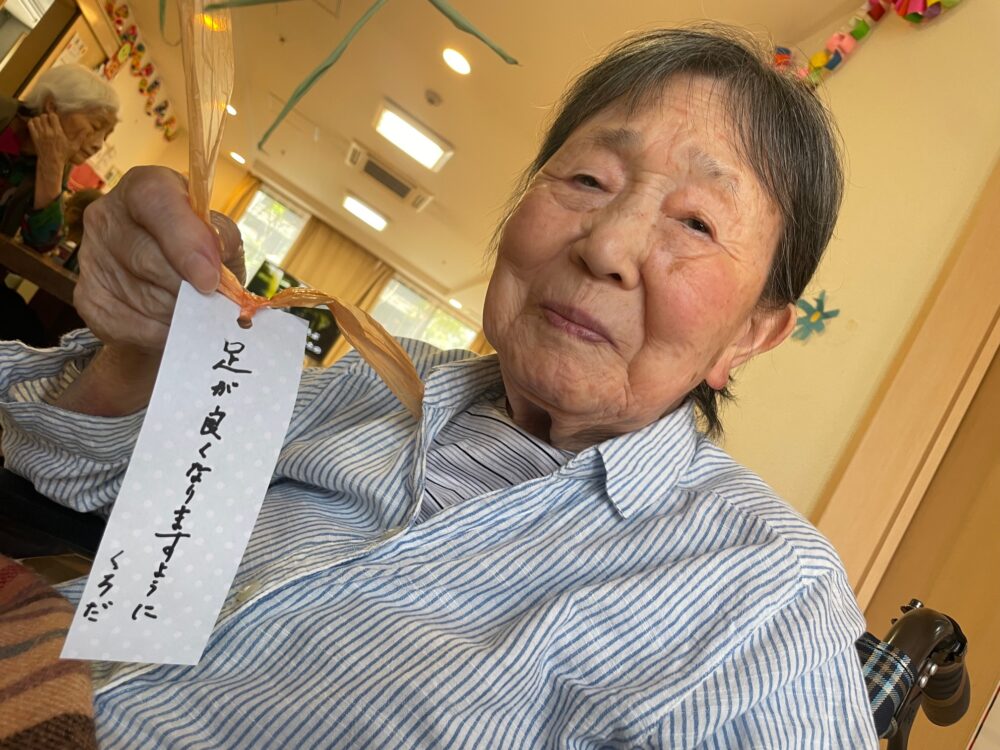 足が良くなりますように
くろだ